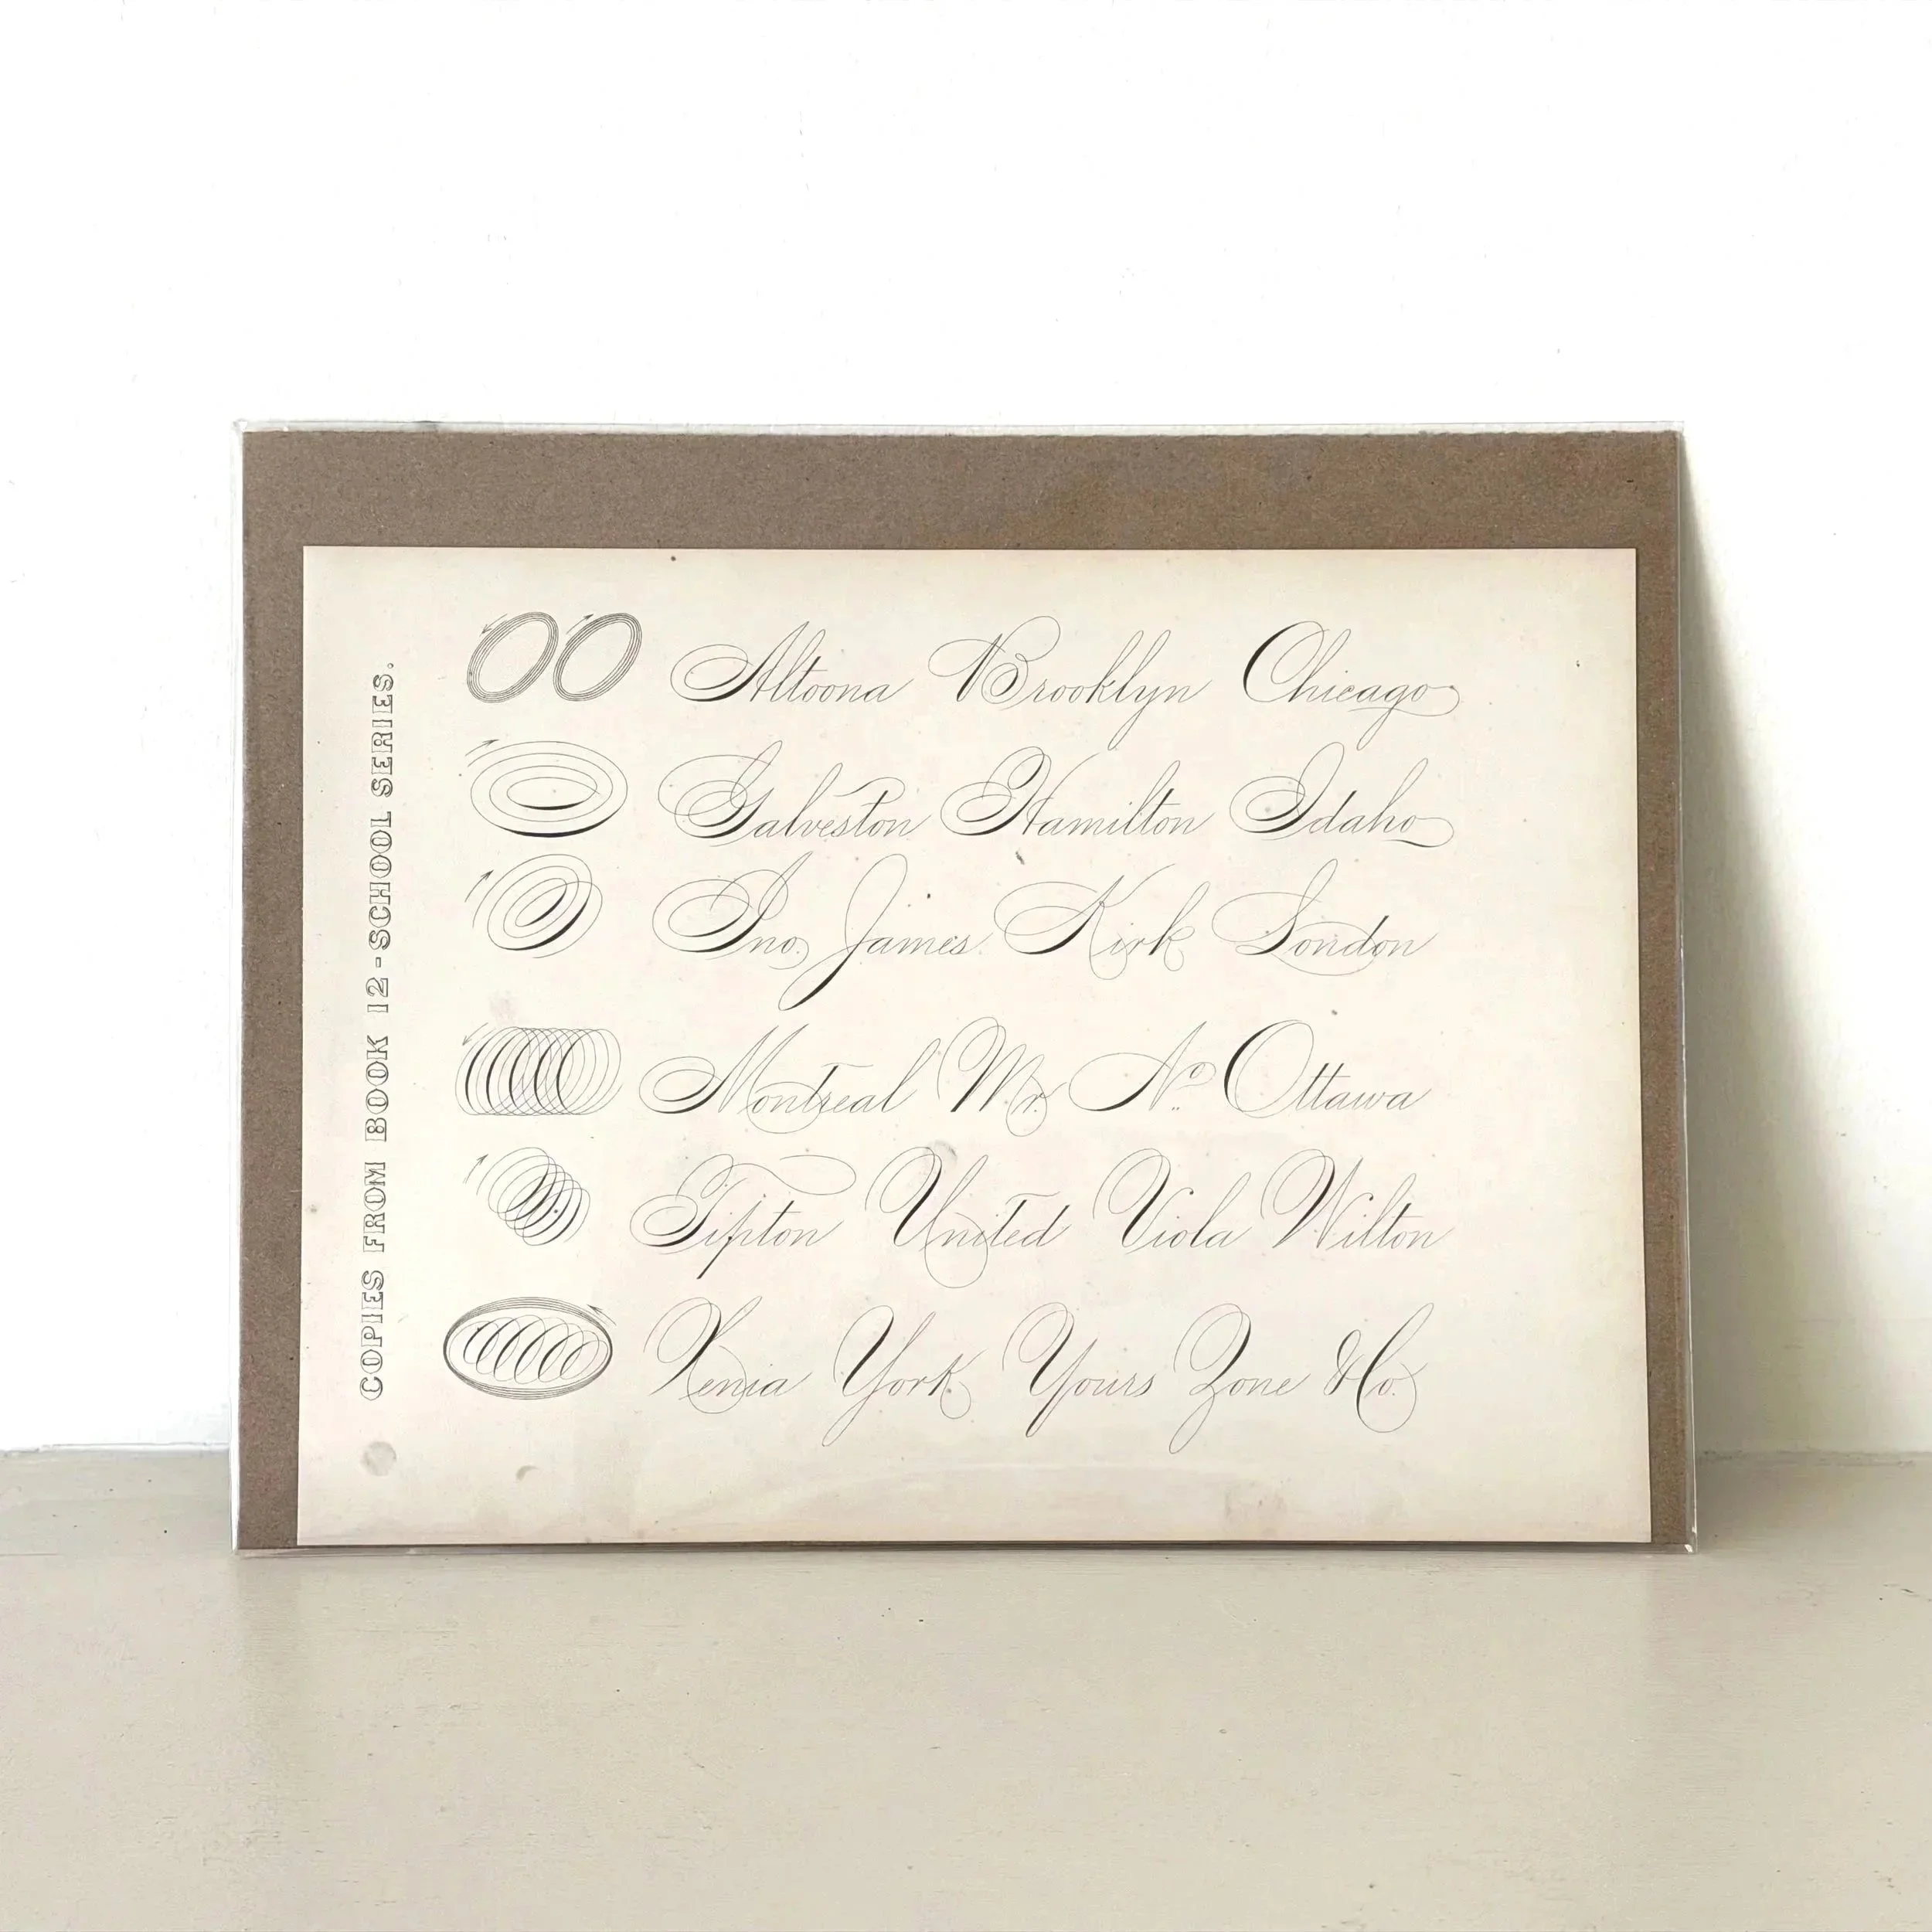 COPIES FROM BOOK 12-SCHOOL SERIES.
Altoona Brooklyn Chicago
Galveston Hamilton Idaho
Jno. James. Kirk London
Montreal Mr. No. Ottawa
Tipton United Viola Wilton
Xenia York Yours Zone &Co.